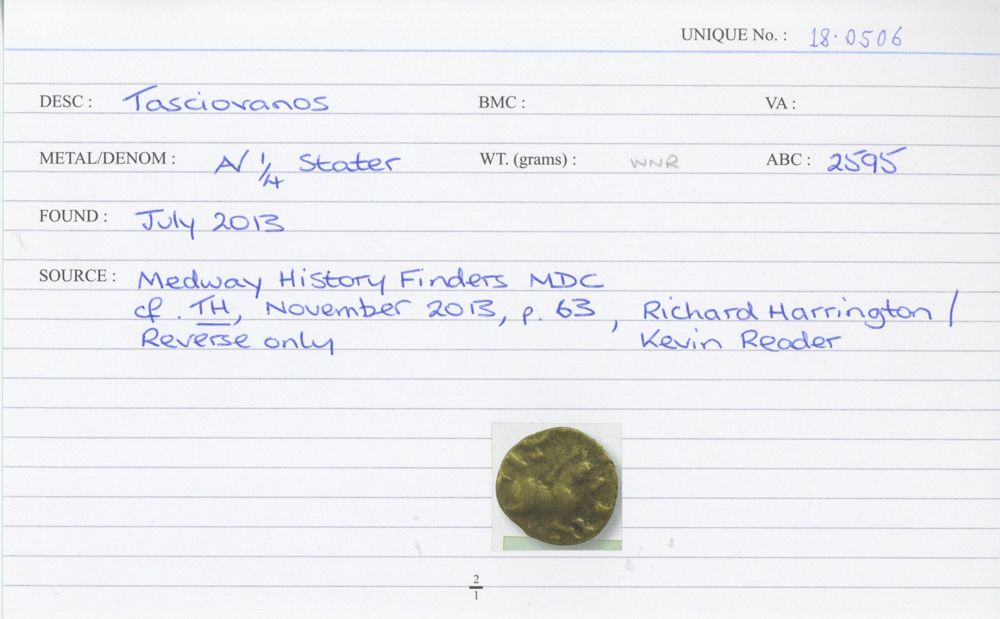 UNIQUE No. : 18·0506
DESC : Tasciovanos BMC : VA :
METAL/DENOM : A/ 1/4 Stater WT. (grams) : WNR ABC : 2595
FOUND : July 2013
SOURCE : Medway History Finders MDC
cf. TH, November 2013, p. 63, Richard Harrington /
Reverse only Kevin Reader
2
1